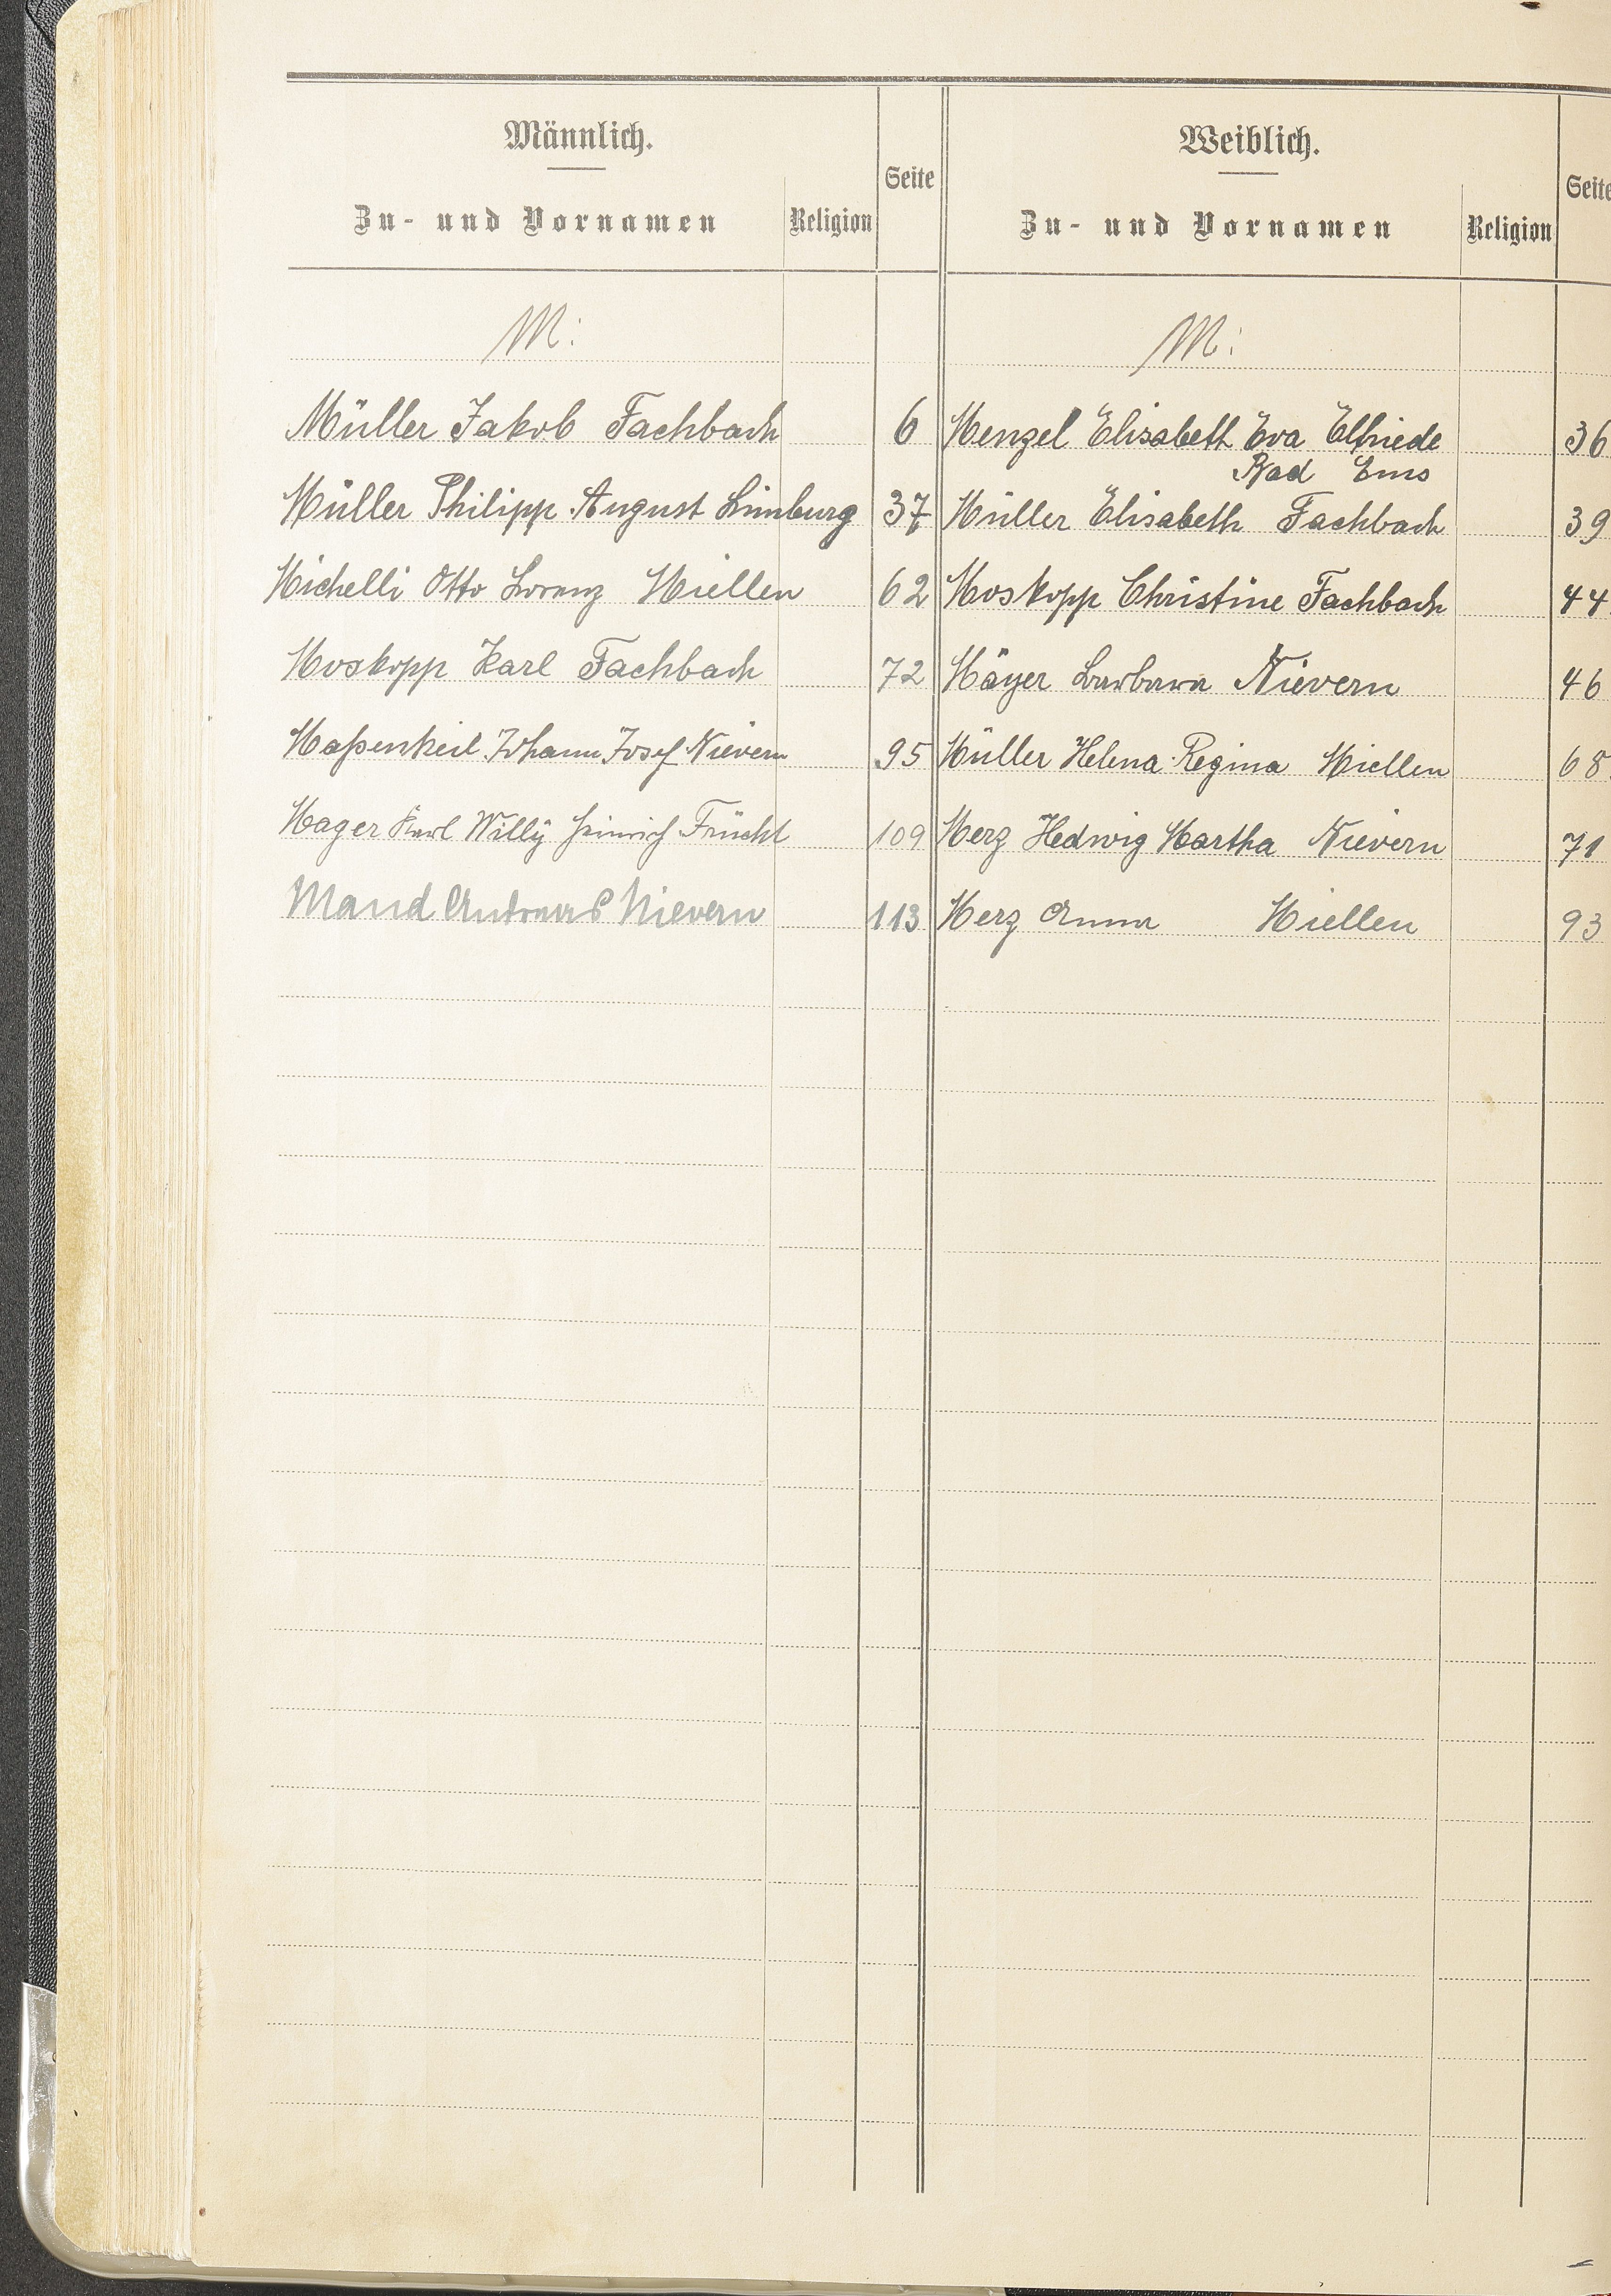 Männlich.
Zu- und Vornamen Religion Seite
M:
Müller Jakob Fachbach 6
Müller Philipp August Limburg 37
Michelli Otto Lorenz Miellen 62
Moskopp Karl Fachbach 72
Maßenkeil Johann Josef Nievern 95
Mager Karl Willÿ Heinrich Frücht 109
Mand Andreas Nievern 113
Weiblich.
Zu- und Vornamen Religion Seite
M:
Menzel Elisabeth Eva Elfriede 36
Bad Ems
Müller Elisabeth Fachbach 39
Moskopp Christine Fachbach 44
Mäyer Barbara Nievern 46
Müller Helena Regina Miellen 68
Merz Hedwig Martha Nievern 71
Merz Anna Miellen 93